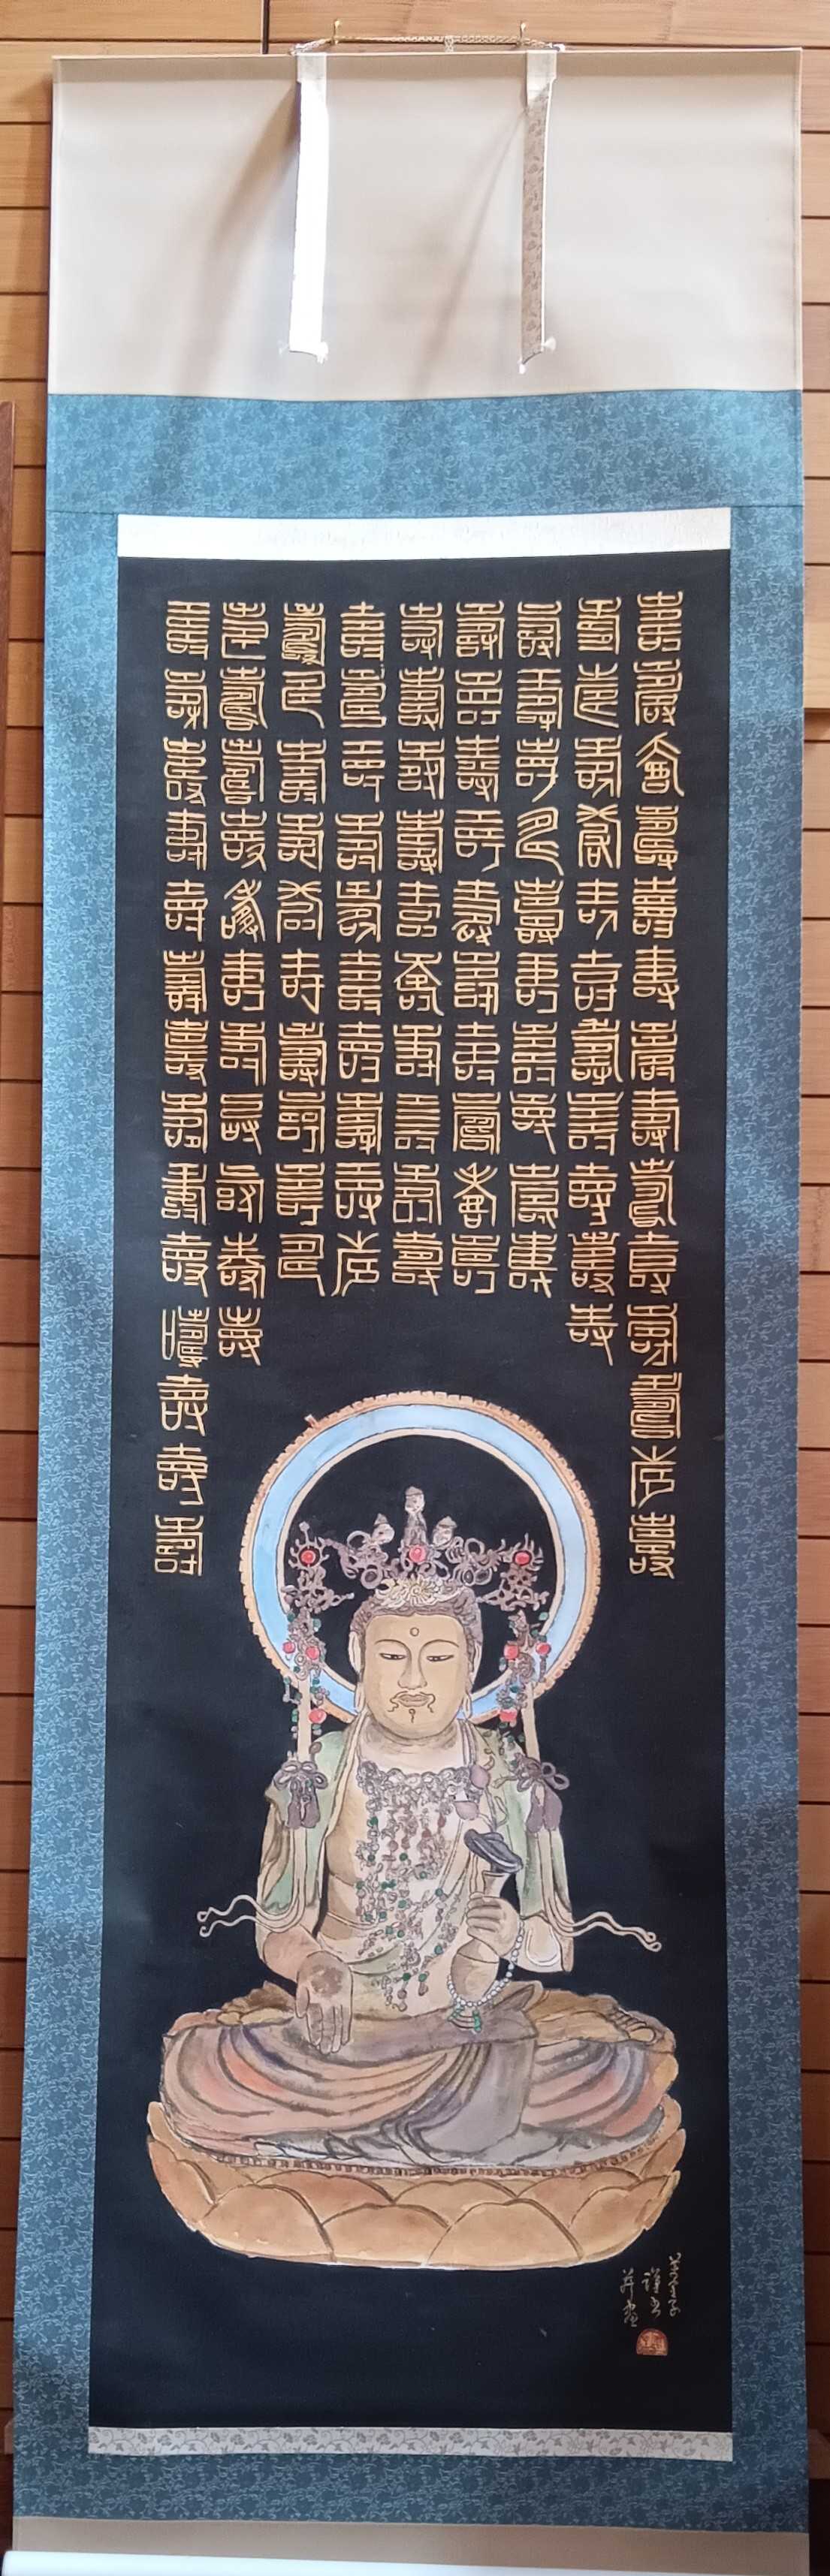 壽壽壽壽壽壽壽壽壽壽壽壽壽壽
壽壽壽壽壽壽壽壽壽壽壽
壽壽壽壽壽壽壽壽壽壽
壽壽壽壽壽壽壽壽壽壽
壽壽壽壽壽壽壽壽壽壽
壽壽壽壽壽壽壽壽壽壽
壽壽壽壽壽壽壽壽壽壽
壽壽壽壽壽壽壽壽壽壽壽
壽壽壽壽壽壽壽壽壽壽壽壽壽壽
謹書
并畫